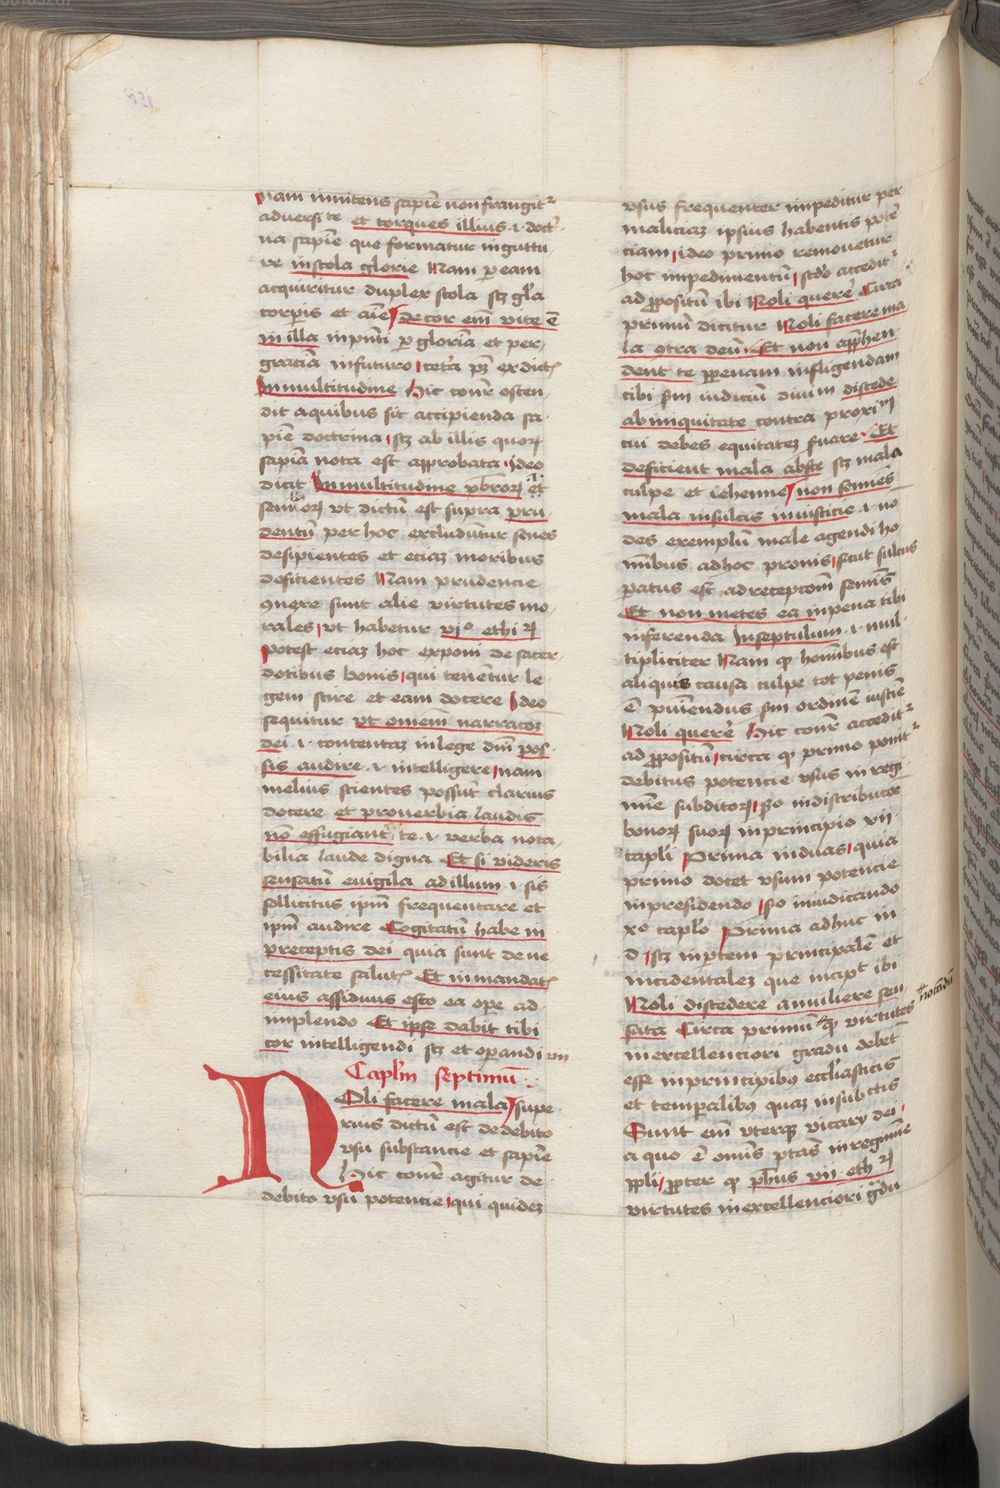 nam innitens sapiē non frangit᷑
adversi te et torques illius .i. doct
na sapiē que formatur in guttu
re in stola glorie Nam per eam
acquiritur duplex stola sꝫ gl'a
corpis et aīe decor em̄ vite ē
in illa in pn̄ti ꝑ gloriā et per
graciā in futuro cet'a pꝫ ex dict
In multitudine Hic cōnr osten
dit a quibus sit accipienda sa
piē doctrina sꝫ ab illis quoꝝ
sapiā nota est approbata ideo
dicit In multitudine pb̄roꝝ et
senioꝝ vt dictū est supra pru
dentū per hoc excluduntur senes
desipientes et eciaꝫ moribus
deficientes Nam prudencie
ꝯnexe sunt alie virtutes mo
rales vt habetur vi° ethi ꝝ
potest eciaꝫ hoc exponi de sacer
dotibus bonis qui tenētur le
gem scire et eam docere Ideo
sequitur vt omēm narracōꝫ
dei .i. contentaꝫ in lege dn̄i pos
sis audire .i. intelligere nam
melius scientes possūt clarius
docere et proverbia laudis
nō effugiant te .i. verba nota
bilia laude digna Et si videris
sensatū evigila ad illum .i. sis
sollicitus ipm̄ frequentare et
ipm̄ audire Cogitatū habe in
preceptis dei quia sunt de ne
cessitate salut Et in mandat
eius assiduus esto ea ope ad
implendo Et ipse dabit tibi
cor intelligendi sꝫ et operandi
vii
Caplm̄ septimū
Noli facere mala supe
rius dictū est de debito
vsu substancie et sapiē
Hic cōnr agitur de
debito vsu potencie qui quideꝫ
vsus frequenter impeditur per
maliciaꝫ ipsius habentis potē
ciam ideo primo removetur
hoc impedimentū scd'o accedit᷑
ad ꝓpositū ibi Noli querer̄ Circa
primū dicitur Noli facere ma
la ꝯtra deū Et non apphen
dent te ꝑ penam infligendam
tibi ẜm iudiciū divinū discede
ab iniquitate contra proximū
cui debes equitateꝫ ẜuare Et
deficient mala abs te sꝫ mala
culpe et iehenne non semines
mala in sulcis iniusticie .i. nō
des exemplū male agendi ho
minibus ad hoc pronis sicut sulcus
patus est ad recepcōm semīs
Et non metes ea in pena tibi
inferenda In septulum .i. mul
tipliciter Nam ꝙ hominibus est
aliquis causa culpe tot penis
ē puniendus ẜm ordinē iusticiē
Noli querer̄ Hic cōnr accedit᷑
ad ꝓpositū circa ꝙ primo ponit᷑
debitus potencie vsus in regi
mīe subditoꝝ scd'o in distribucōe
bonoꝝ suoꝝ in principio xii
capli Prima in duas quia
primo docet vsum potencie
in presidendo scd'o in iudicando
xo caplo Prima adhuc in
d sꝫ in ptem principalē et
incidentaleꝫ que incipt ibi
Noli discedere a muliere sen
sata Circa primū ꝙ virtutes
notādū
in excellenciori gradu debēt
esse in principibꝰ eccl'iasticis
et temporalibꝰ quaꝫ in subiectis
Sunt em̄ vterqꝫ vicarij dei
a quo ē omīs ptās in regimīe
ppli ꝓpter ꝙ ph̄us vii eth ꝝ
virtutes in excellenciori g̊du